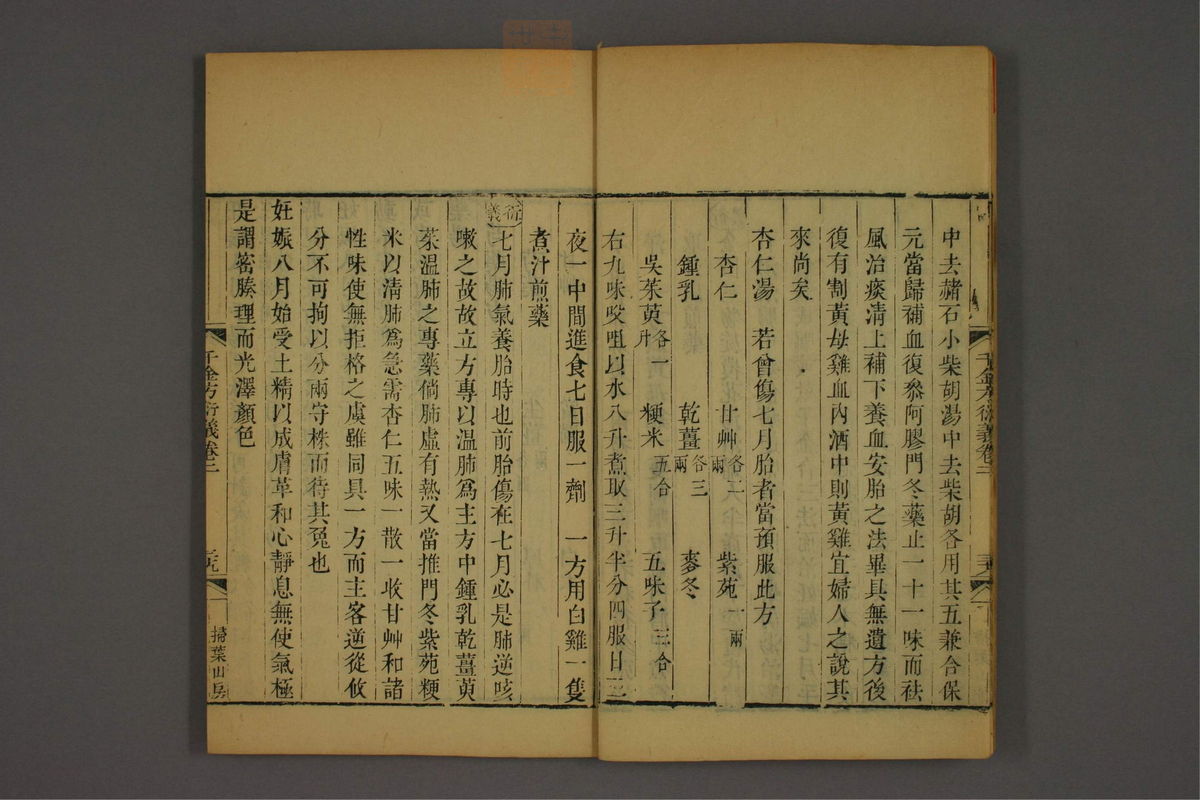 中去赭石小柴胡湯中去柴胡各用其五兼合保
元當歸補血復叅阿膠門冬藥止一十一味而祛
風治痰清上補下養血安胎之法畢具無遺方後
復有割黃母雞血內酒中則黃雞宜婦人之說其
來尚矣
杏仁湯　若曾傷七月胎者當預服此方
杏仁　甘艸各二兩　紫苑一兩
鍾乳　乾薑各三兩　麥冬
吳茱萸各一升　粳米五合　五味子三合
右九味㕮咀以水八升煮取三升半分四服日三
夜一中間進食七日服一劑　一方用白雞一隻
煮汁煎藥
衍義 七月肺氣養胎時也前胎傷在七月必是肺逆咳
嗽之故故立方專以温肺爲主方中鍾乳乾薑萸
茱温肺之專藥倘肺虛有熱又當推門冬紫苑粳
米以清肺爲急需杏仁五味一散一收甘艸和諸
性味使無拒格之虞雖同具一方而主客逆從攸
分不可拘以分兩守株而待其兔也
妊娠八月始受土精以成膚革和心靜息無使氣極
是謂密腠理而光澤顏色
千金方衍義卷二
掃葉山房